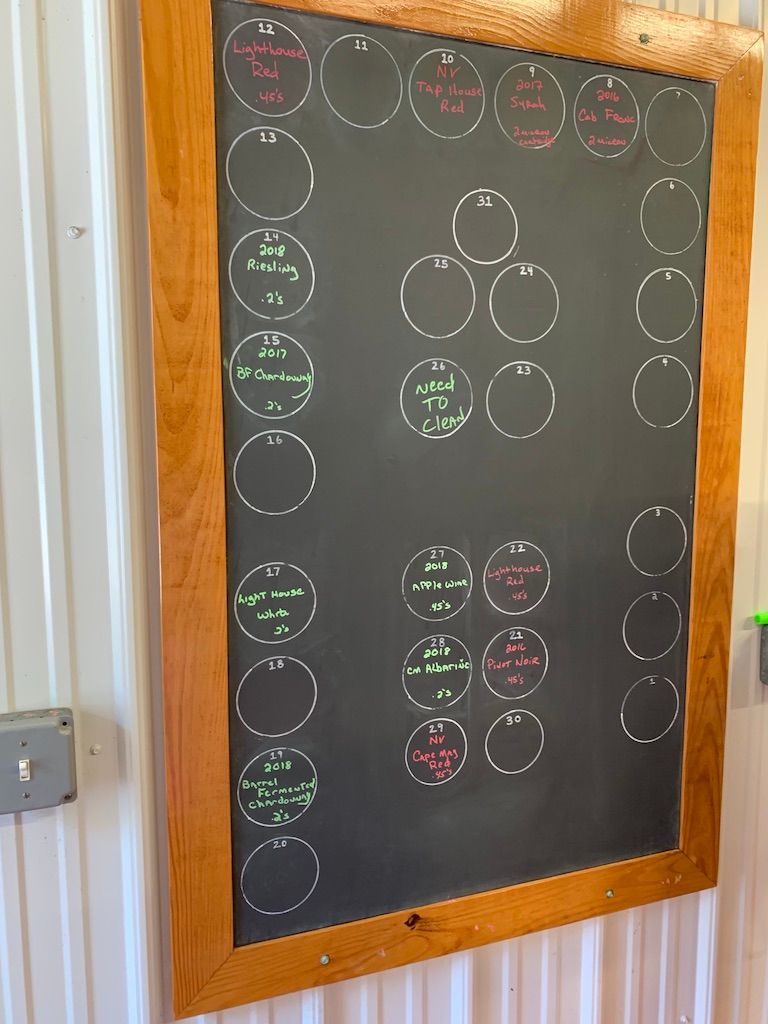 12
Lighthouse
Red
.45's
11
10
NV
TAP House
Red
9
2017
Syrah
2 micron
cartridge
8
2016
Cab Franc
2 micron
7
13
6
31
14
2018
Riesling
.2's
25
24
5
15
2017
BF Chardonnay
.2's
26
Need
TO
Clean
23
4
16
3
17
Light House
White
.2's
27
2018
Apple Wine
.45's
22
Lighthouse
Red
.45's
2
18
28
2018
CM Albarino
.2's
21
2016
Pinot Noir
.45's
1
19
2018
Barrel
Fermented
Chardonnay
.2's
29
NV
Cape May
Red
.45's
30
20